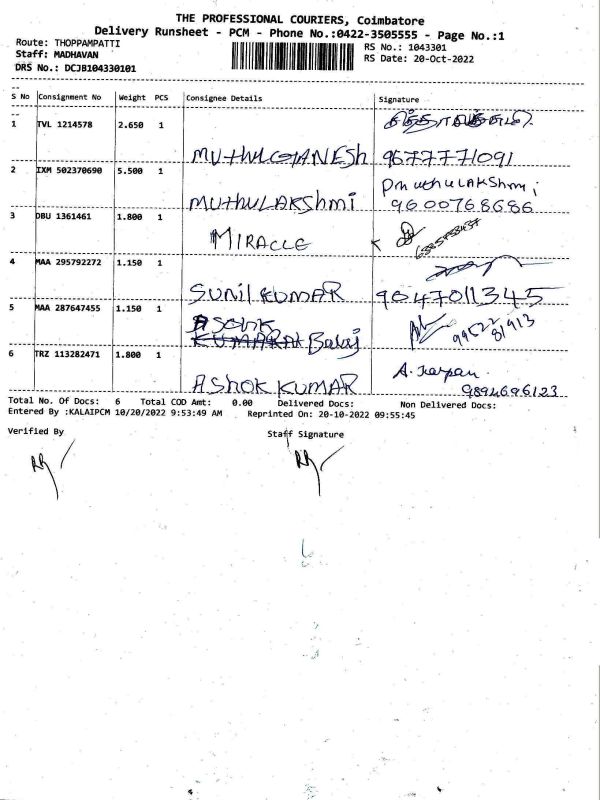 THE PROFESSIONAL COURIERS, Coimbatore
Delivery Runsheet - PCM - Phone No.:0422-3505555 - Page No.:1
Route: THOPPAMPATTI
RS No.: 1043301
Staff: MADHAVAN
RS Date: 20-Oct-2022
DRS No.: DCJB104330101
S No Consignment No Weight PCS Consignee Details Signature
1 TVL 1214578 2.650 1
MUTHUGANESH 9677771091
2 IXM 502370690 5.500 1
PMuthuLAKShmi
MUTHULAKShmi 9600768686
3 DBU 1361461 1.800 1
MIRACLE
4 MAA 295792272 1.150 1
SUNIL KUMAR 9047011345
5 MAA 287647455 1.150 1
Balaj 99622 81913
6 TRZ 113282471 1.800 1
ASHOK KUMAR 9894696123
Total No. Of Docs: 6 Total COD Amt: 0.00 Delivered Docs: Non Delivered Docs:
Entered By :KALAIPCM 10/20/2022 9:53:49 AM Reprinted On: 20-10-2022 09:55:45
Verified By Staff Signature